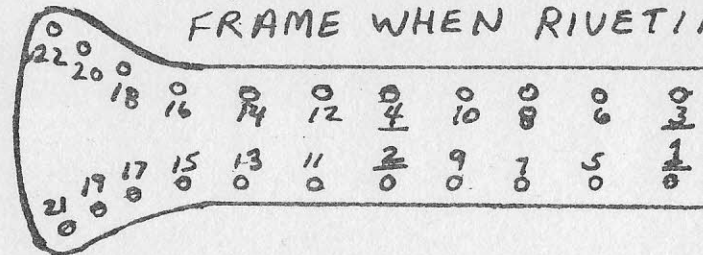 FRAME WHEN RIVETI
22 20 18 16 14 12 4 10 8 6 3
21 19 17 15 13 11 2 9 7 5 1